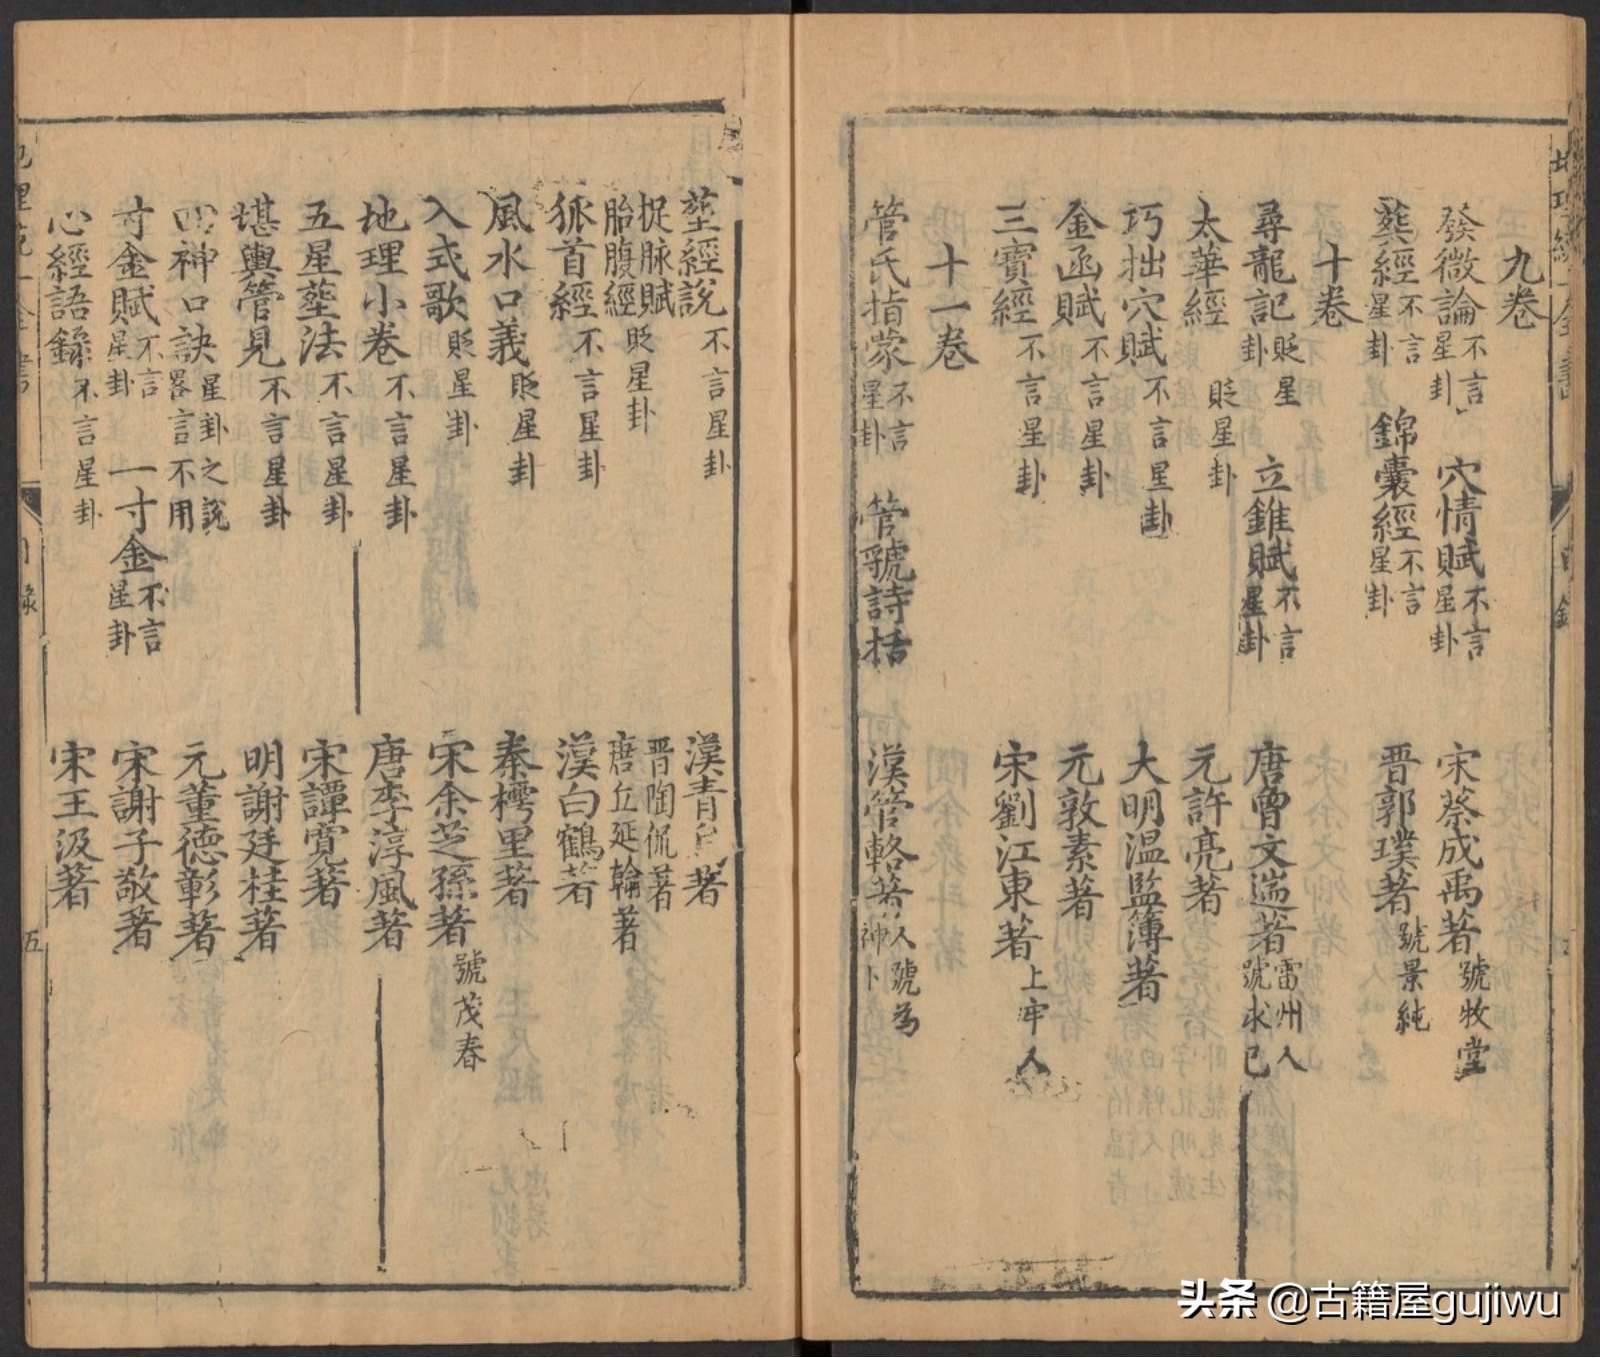 九卷
發微論不言星卦 穴情賦不言星卦 宋蔡成禹著號牧堂
葬經不言星卦 錦囊經不言星卦 晋郭璞著號景純
十卷
尋龍記貶星卦 立錐賦不言星卦 唐曾文遄著雷州人號求已
太華經貶星卦 元許亮著
巧拙穴賦不言星卦 大明温監簿著
金函賦不言星卦 元敦素著
三寶經不言星卦 宋劉江東著上牢人
十一卷
管氏指蒙不言星卦 管虢詩括 漢管輅著人號為神卜
塟經說不言星卦 漢青烏著
捉脉賦 晋陶侃著
胎腹經貶星卦 唐丘延翰著
狐首經不言星卦 漢白鶴著
風水口義貶星卦 秦樗里著
入式歌貶星卦 宋余芝孫著號茂春
地理小卷不言星卦 唐李淳風著
五星塟法不言星卦 宋譚寬著
堪輿管見不言星卦 明謝廷桂著
四神口訣星卦之說畧言不用 元董德彰著
寸金賦不言星卦 一寸金不言星卦 宋謝子敬著
心經語錄不言星卦 宋王汲著
目錄
五
头条 @古籍屋gujiwu